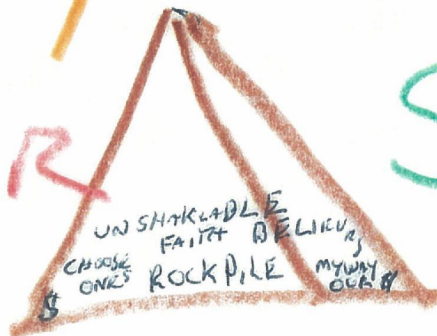 R
S
UNSHAKLABLE
FAITH BELIEVRS
CHOOSE
ONES
ROCKPILE
MYWAY
OUR $
$